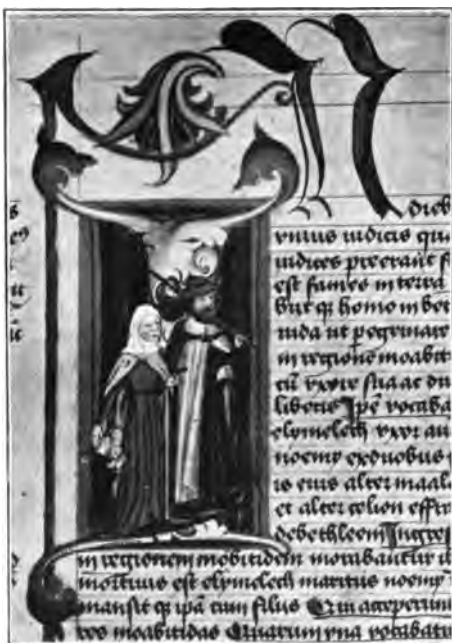 IN dieb
vnius iudicis qu
iudices preerant f
est fames in terra
biit q; homo in bet
iuda ut pegrinare
in regione moabit
cū vxore sua ac du
liberis Ipē vocaba
elymelech vxor au
noemy exduobus
is eius alter maal
et alter celion effra
debethleem Ingre
in regionem mobitidem morabantur i
mortuus est elymelech maritus noemy
mansit q; ipā cum filiis Qui acceperun
res moabitidas Quarum vna vocabatu